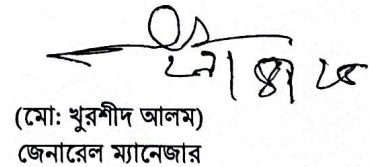 (মো: খুরশীদ আলম)
জেনারেল ম্যানেজার